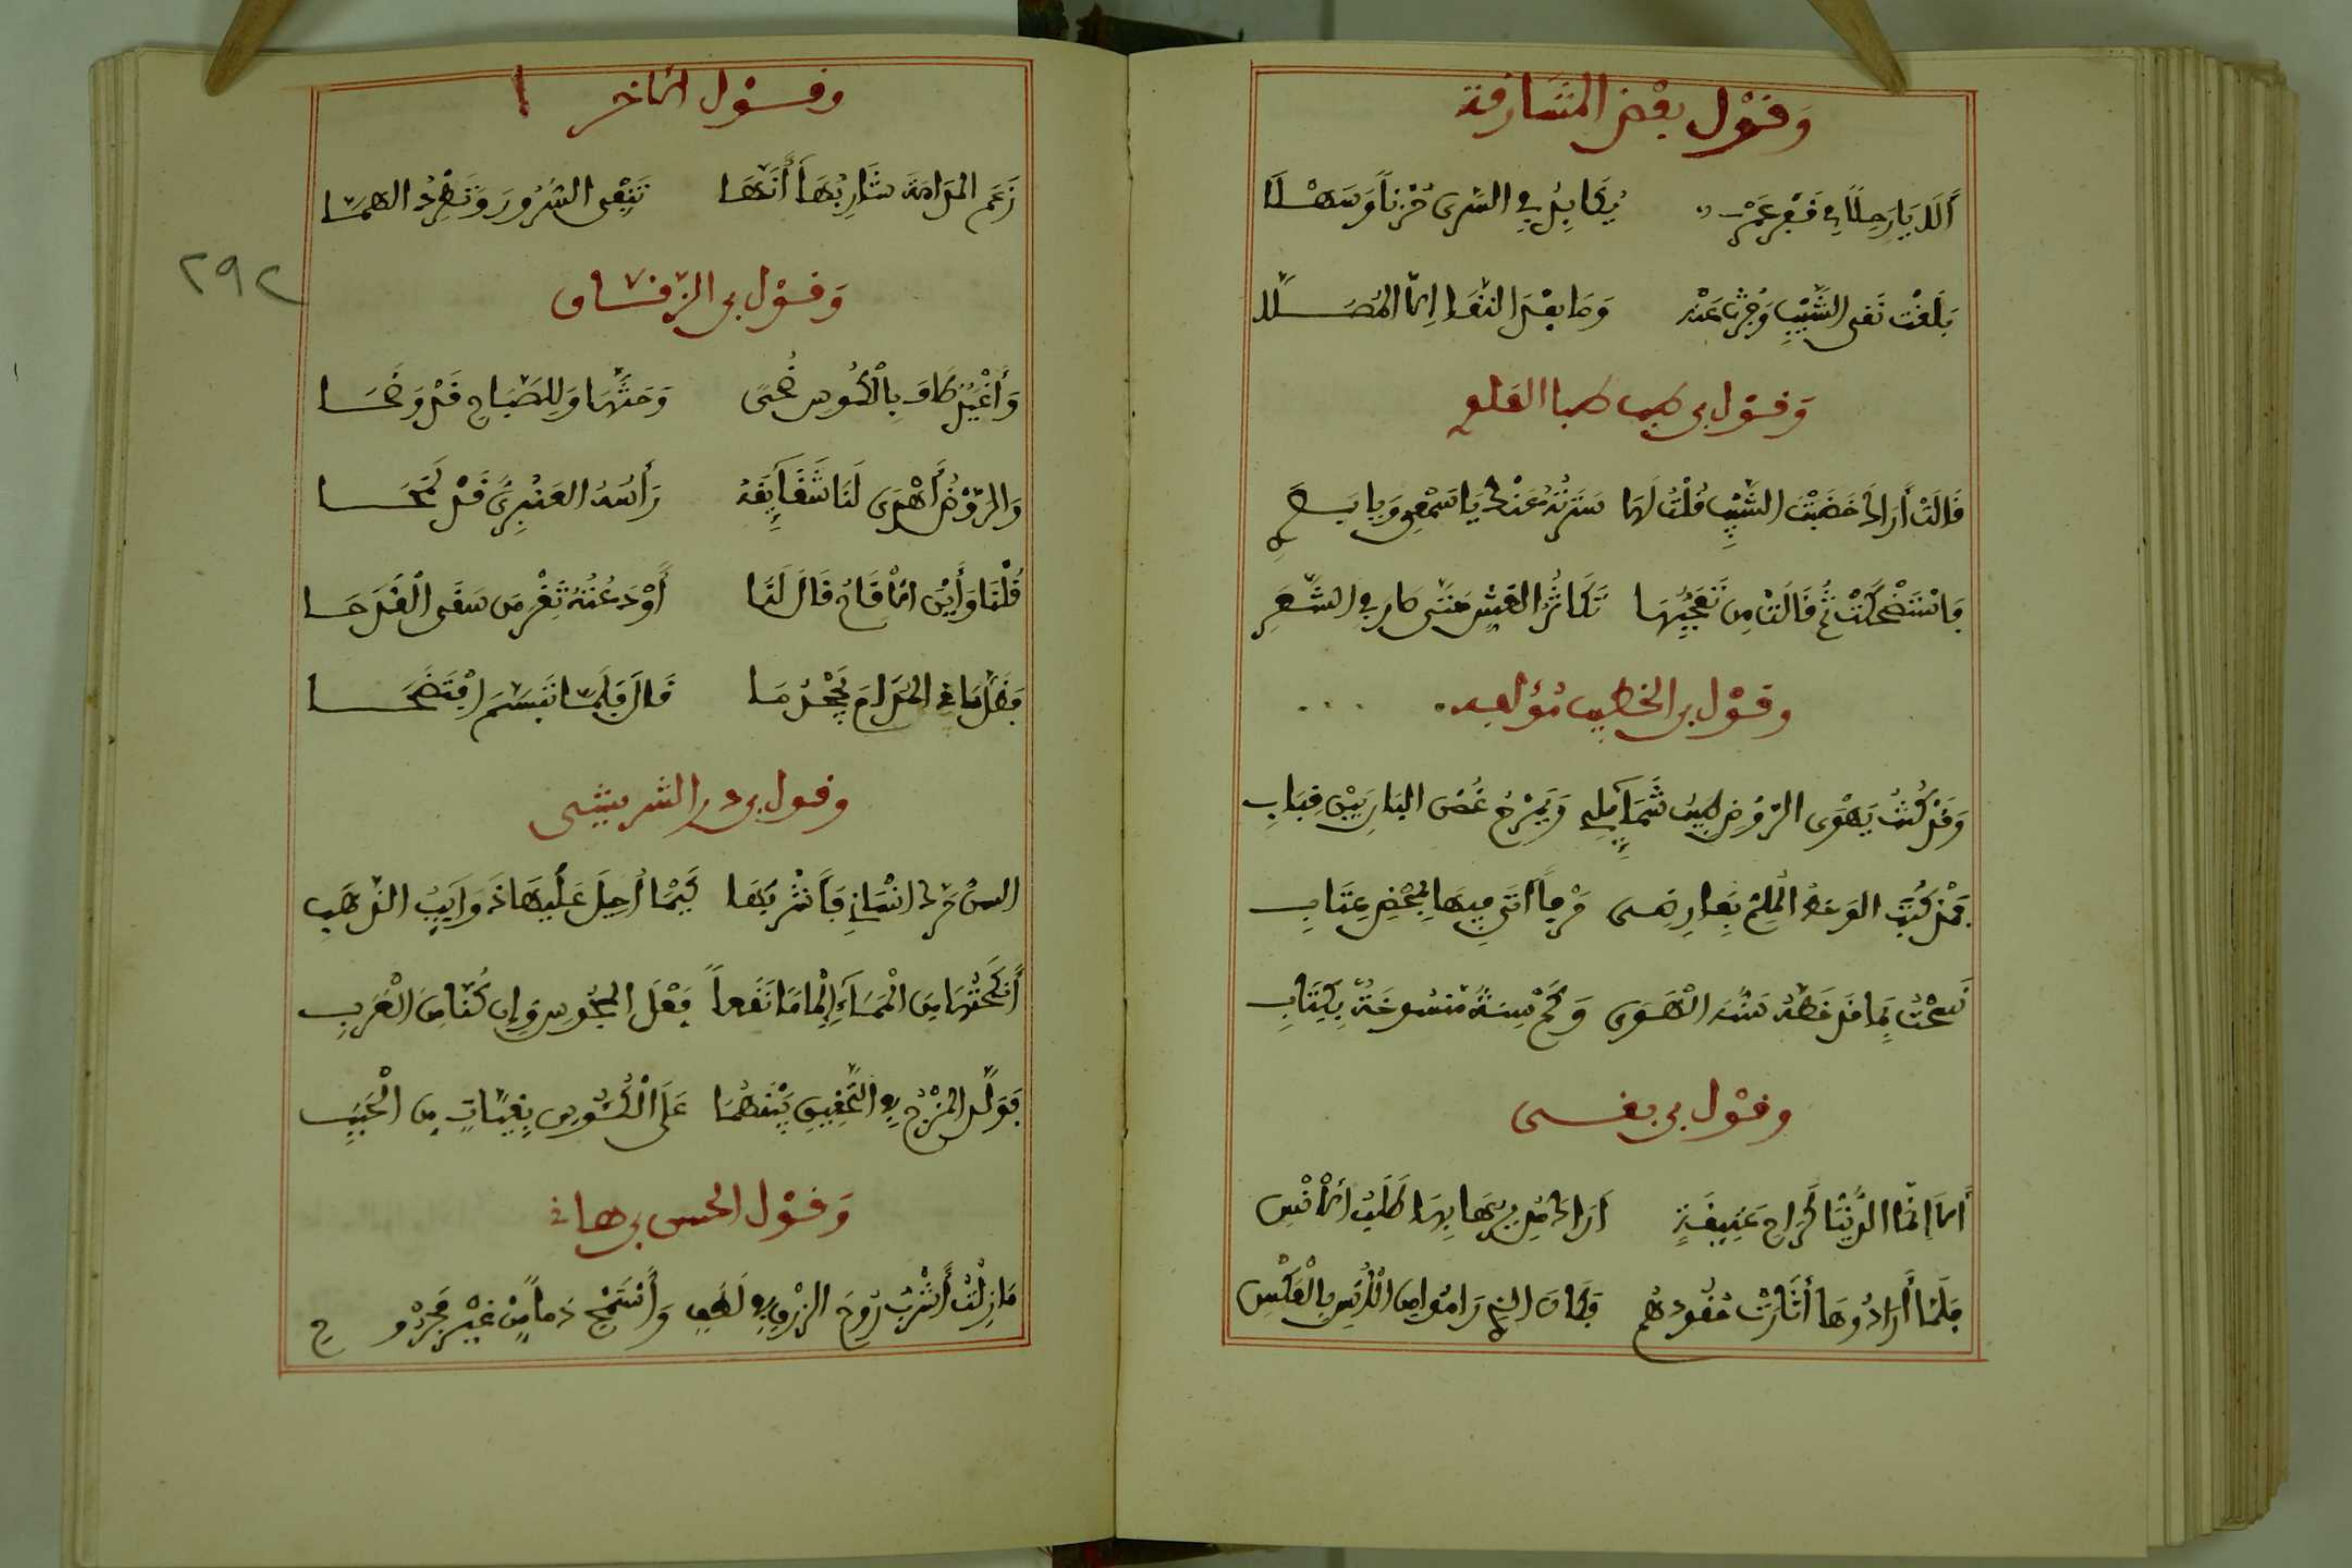 وَقَوْل بعْض المشَارقة
أَلَا يَا رَاحِلًا فِي قَفْرِ عُمْرٍ يُكَابِدُ فِي السُّرَى حُزْنًا وَسَهْلَا
بَلَغْتَ نَقَى الشَّيْبِ وَجُزْتَ عَنْهُ وَمَا بَعْدَ النَّقَا إِلَّا المُصَلَّا
وَقَوْل بن طباطبا العلوي
قَالَتْ أَرَاكَ خَضَبْتَ الشَّيْبَ قُلْتُ لَهَا سَتَرْتُهُ عَنْكِ يَا سَمْعِي وَيَا بَصَرِ
فَاسْتَضْحَكَتْ ثُمَّ قَالَتْ مِنْ تَعَجُّبِهَا تَكَاثُرُ الغِشِّ حَتَّى صَارَ فِي الشَّعَرِ
وقَوْل بن الخطيب مُؤلفه
وَقَدْ كُنْتُ يَهْوَى الرَّوْضُ طِيبَ شَمَائِلِهِ وَيَمْرَحُ غُصْنُ البَانِ بَيْنَ قِبَابِ
فَمُذْ كَتَبَ الوَخْطُ المُلِمُّ بِعَارِضِي حُرُوفًا أَتَى فِيهَا بِمَحْضِ عِتَابِ
نَسَخْتُ بِمَا قَدْ خَطَّهُ سُنَّةَ الْهَوَى وَكَمْ سُنَّةٍ مَنْسُوخَةٌ بِكِتَابِ
وقَوْل بن بقي
أَلَا إِنَّمَا الدُّنْيَا كَرَاحٍ عَتِيقَةٍ أَرَادَ مُدِيرُوهَا بِهَا طَلَبَ الْأُنْسِ
فَلَمَّا أَرَادُوهَا أَثَارَتْ حُقُودَهُمْ فَكَانَ الَّذِي رَامُوا مِنَ الْأُنْسِ بِالْعَكْسِ
وقَوْل الآخر
زَعَمَ المُدَامَةَ شَارِبُهَا أَنَّهَا تَنْفِي السُّرُورَ وَتَطْرُدُ الهَمَّا
٢٩٢
وَقَوْل بن الزقاق
وَأَغْيَدٍ طَافَ بِالْكُؤُوسِ ضُحًى وَحَثَّهَا وَلِلصَّبَاحِ قَدْ وَضَحَا
وَالرَّوْضُ أَهْدَى لَنَا شَقَائِقَهُ وَآسُهُ العَنْبَرِيُّ قَدْ نَفَحَا
قُلْنَا وَأَيْنَ الْأَقَاحُ قَالَ لَنَا أَوْدَعْتُهُ ثَغْرَ مَنْ سَقَى الْقَدَحَا
فَظَلَّ سَاقِي المُدَامِ يَجْحَدُ مَا قَالَ فَلَمَّا تَبَسَّمَ افْتَضَحَا
وقول بن در الشريشي
أَنْكَحْتُهَا مِنَ الْمَسَاءِ فِعْلَ المَجُوسِ وَإِنْ كُنَّا مِنَ الْعَرَبِ
فَوَلَّدَ المَزْجُ فِي التَّحْقِيقِ بَيْنَهُمَا عَلَى الْكُؤُوسِ بُنَيَّاتٍ مِنَ الْحَبَبِ
وَقَوْل الحسن بن هانئ
مَا زِلْتُ أَشْرَبُ رُوحَ الزِّقِّ فِي لُطْفٍ وَأَسْتَبِيحُ دَمًا مِنْ غَيْرِ مَجْرُوحِ